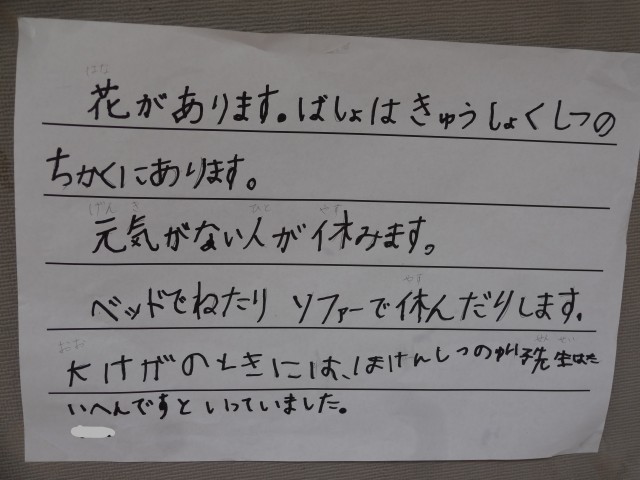 はな
花があります。ばしょはきゅうしょくしつの
ちかくにあります。
げんき ひと やす
元気がない人が休みます。
やす
ベッドでねたり ソファーで休んだりします。
おお せんせい
大けがのときには、ほけんしつのゆり子先生はた
いへんですといっていました。